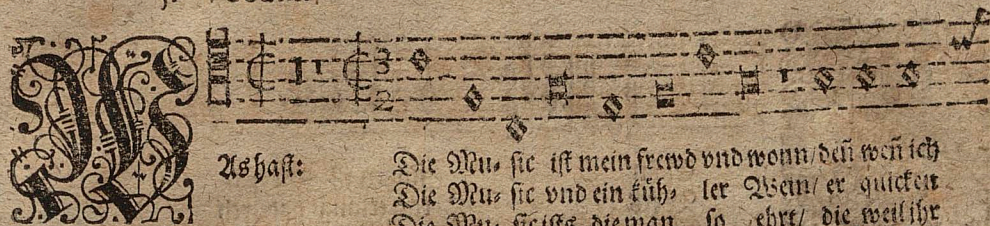 3
2
W
As haſt:
Die Mu- ſic iſt mein frewd vnd wonn/ deñ weñ ich
Die Mu- ſic vnd ein küh- ler Wein/ er quicken
Die Mu- die man ſo ehrt/ die weil ihr